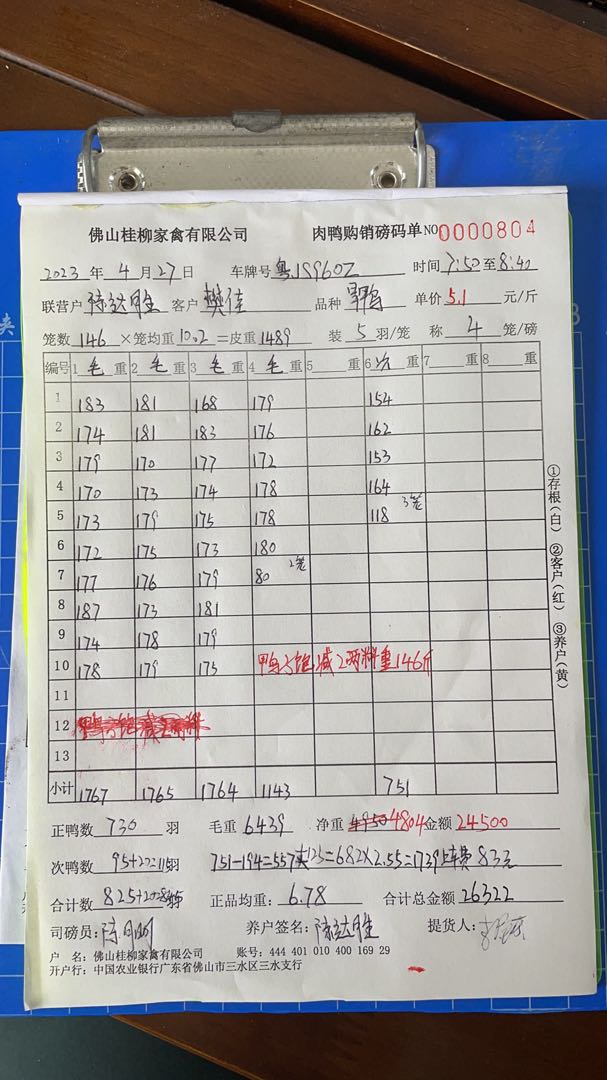 佛山桂柳家禽有限公司 肉鸭购销磅码单 NO 0000804
2023 年 4 月 27 日 车牌号 粤JS960Z 时间 7:50 至 8:40
联营户 陈达胜 客户 樊佳 品种 单价 5.1 元/斤
笼数 146 ×笼均重 10.2 =皮重 1489 装 5 羽/笼 称 4 笼/磅
编号 1 毛 重 2 毛 重 3 毛 重 4 毛 重 5 重 6 次 重 7 重 8 重
1 183 181 168 179 154
2 174 181 183 176 162
3 179 170 177 172 153
4 170 173 174 178 164
5 173 179 175 178 118 3笼
6 172 175 173 180
7 177 176 179 80 2笼
8 187 173 181
9 174 178 179
10 178 179 175 鸭与饱减2两料重146斤
11
12
13
小计 1767 1765 1764 1143 751
正鸭数 730 羽 毛重 6439 净重 4950 4804 金额 24500
次鸭数 95+20=115羽 751-194=557+125=682×2.55=1739 费 83元
合计数 825+20 羽 正品均重: 6.78 合计总金额 26322
司磅员: 养户签名: 陈达胜 提货人:
户 名: 佛山桂柳家禽有限公司 账号: 444 401 010 400 169 29
开户行: 中国农业银行广东省佛山市三水区三水支行
①存根(白) ②客户(红) ③养户(黄)